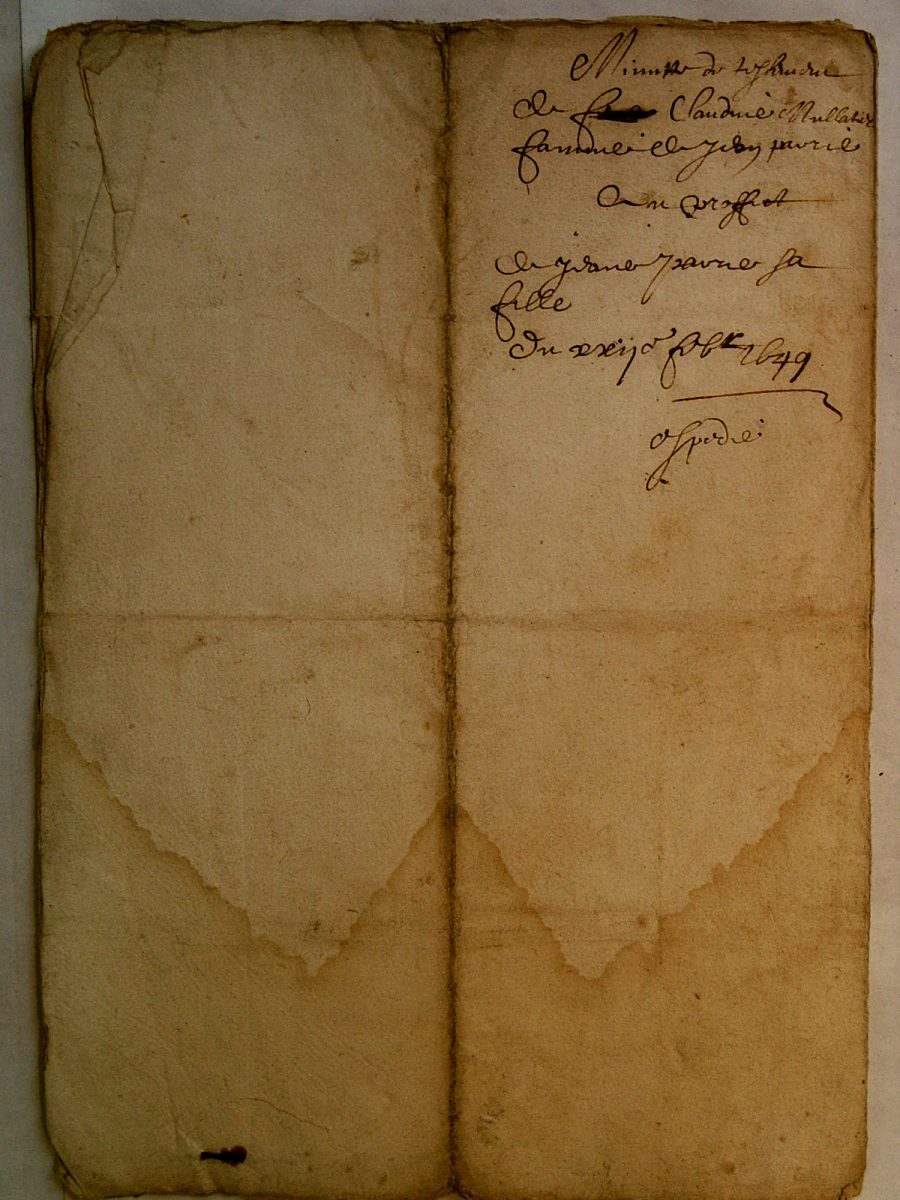 Minutte de testament
de Claudine Mullatier
famme de Jean pavrie
au proffict
de Jeane pavrie sa
fille
du xxij^e feb^r 1649